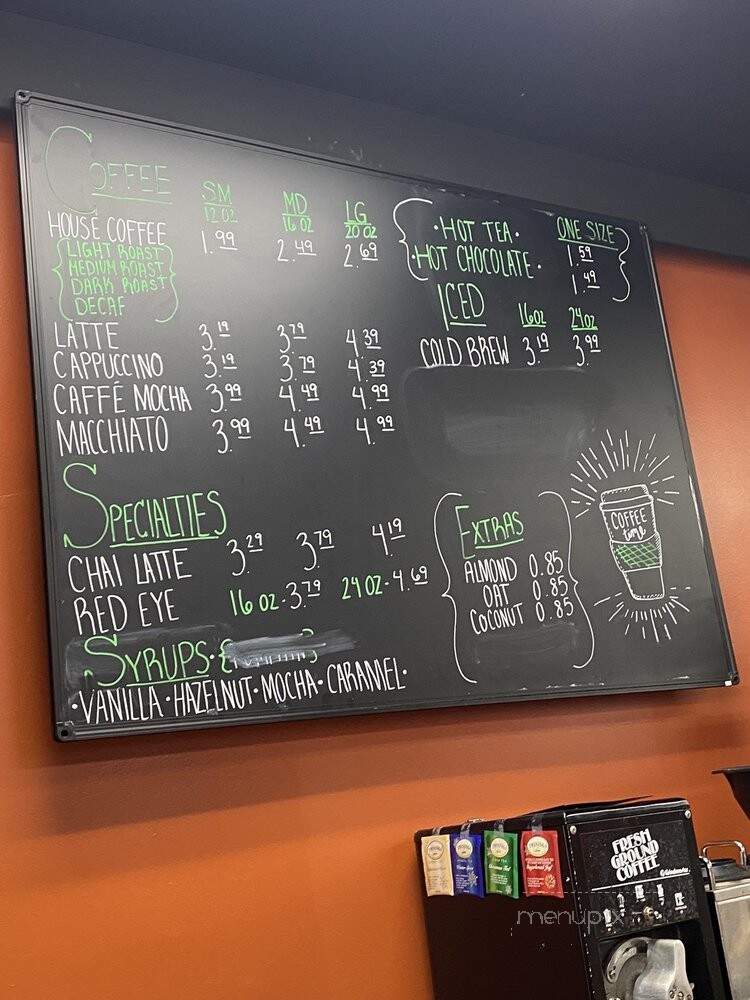 COFFEE SM MD LG
12 OZ 16 OZ 20 OZ
HOUSE COFFEE 1.99 2.49 2.69
LIGHT ROAST
MEDIUM ROAST
DARK ROAST
DECAF
LATTE 3.19 3.79 4.39
CAPPUCCINO 3.19 3.79 4.39
CAFFÉ MOCHA 3.99 4.49 4.99
MACCHIATO 3.99 4.49 4.99
SPECIALTIES
CHAI LATTE 3.29 3.79 4.19
RED EYE 16 OZ - 3.79 24 OZ - 4.69
SYRUPS
• VANILLA • HAZELNUT • MOCHA • CARAMEL •
ONE SIZE
• HOT TEA • 1.59
• HOT CHOCOLATE • 1.49
ICED 16OZ 24OZ
COLD BREW 3.19 3.99
EXTRAS
ALMOND 0.85
OAT 0.85
COCONUT 0.85
COFFEE
time
TWININGS TWININGS TWININGS TWININGS
FRESH
GROUND
COFFEE
menupix